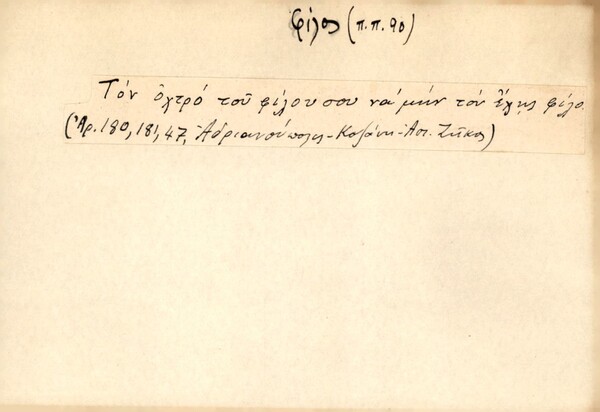 φίλος (π.π. 90)
Τόν ὀχτρό τοῦ φίλου σου νά μήν τόν ἔχῃς φίλο.
(Ἀρ. 180, 181, 47, Ἀδριανούπολις - Κοζάνη - Ἀπ. Ζῆκας)